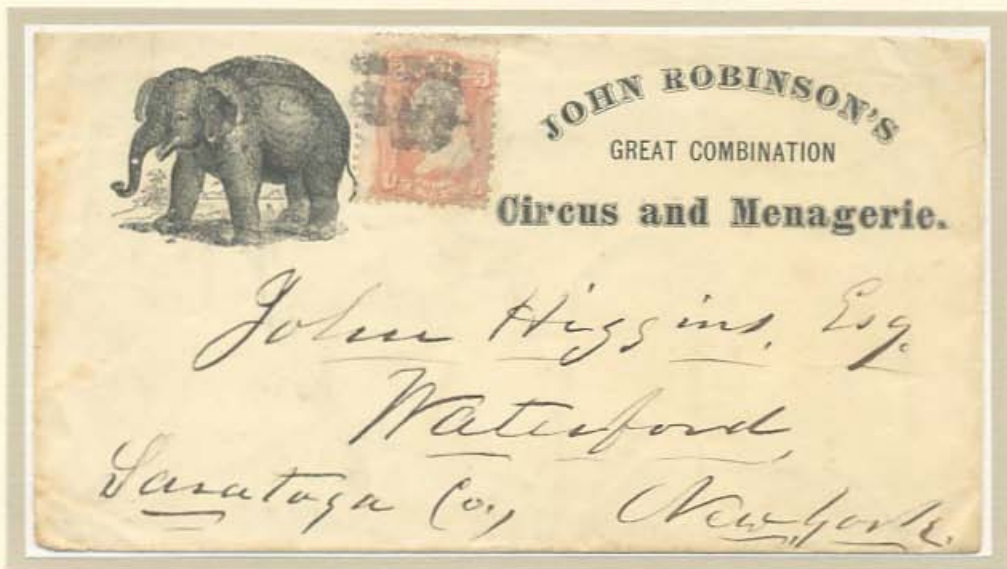 JOHN ROBINSON'S
GREAT COMBINATION
Circus and Menagerie.
John Higgins, Esq.
Waterford,
Saratoga Co., New York.